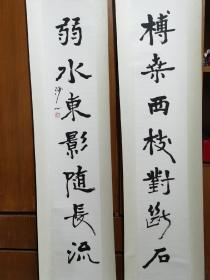 榑桒西枝對斷石
弱水東影隨長流